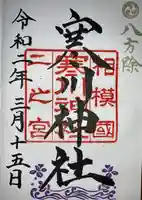 八方除
相模國
一之宮
寒川神社
令和二年三月十五日